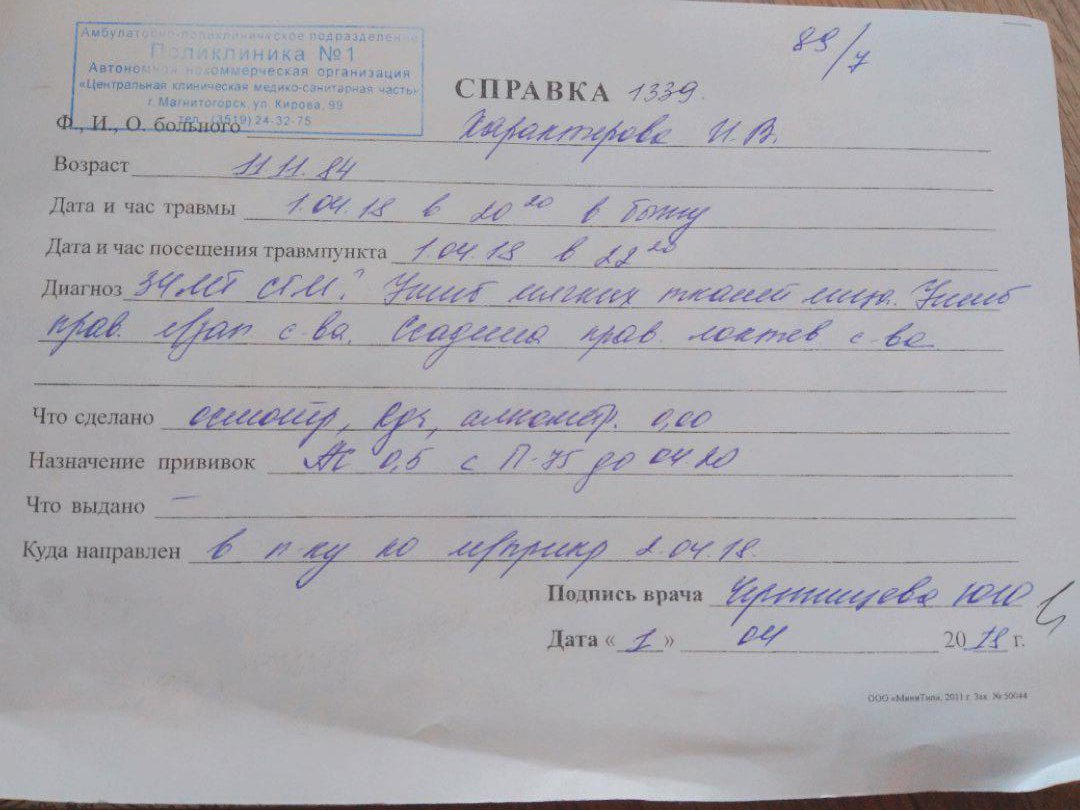 89/7
Амбулаторно-поликлиническое подразделение
Поликлиника №1
Автономная некоммерческая организация
«Центральная клиническая медико-санитарная часть»
г. Магнитогорск, ул. Кирова, 99
тел. (3519) 24-32-75
СПРАВКА 1339.
Ф., И., О. больного Характерова И. В.
Возраст 11 11. 84
Дата и час травмы 1.04.18 в 20 20 в быту
Дата и час посещения травмпункта 1.04.18 в 22 20
Диагноз ЗЧМТ СГМ? Ушиб мягких тканей лица. Ушиб
прав. с-ва. Ссадина прав. локтев с-ва
Что сделано осмотр, алкометр. 0,00
Назначение прививок АС 0,5 с П-75 до 04.20
Что выдано –
Куда направлен в п-ку по 2.04.18
Подпись врача
Дата « 1 » 04 2018 г.
ООО «МиниТип», 2011 г. Зак. № 50044